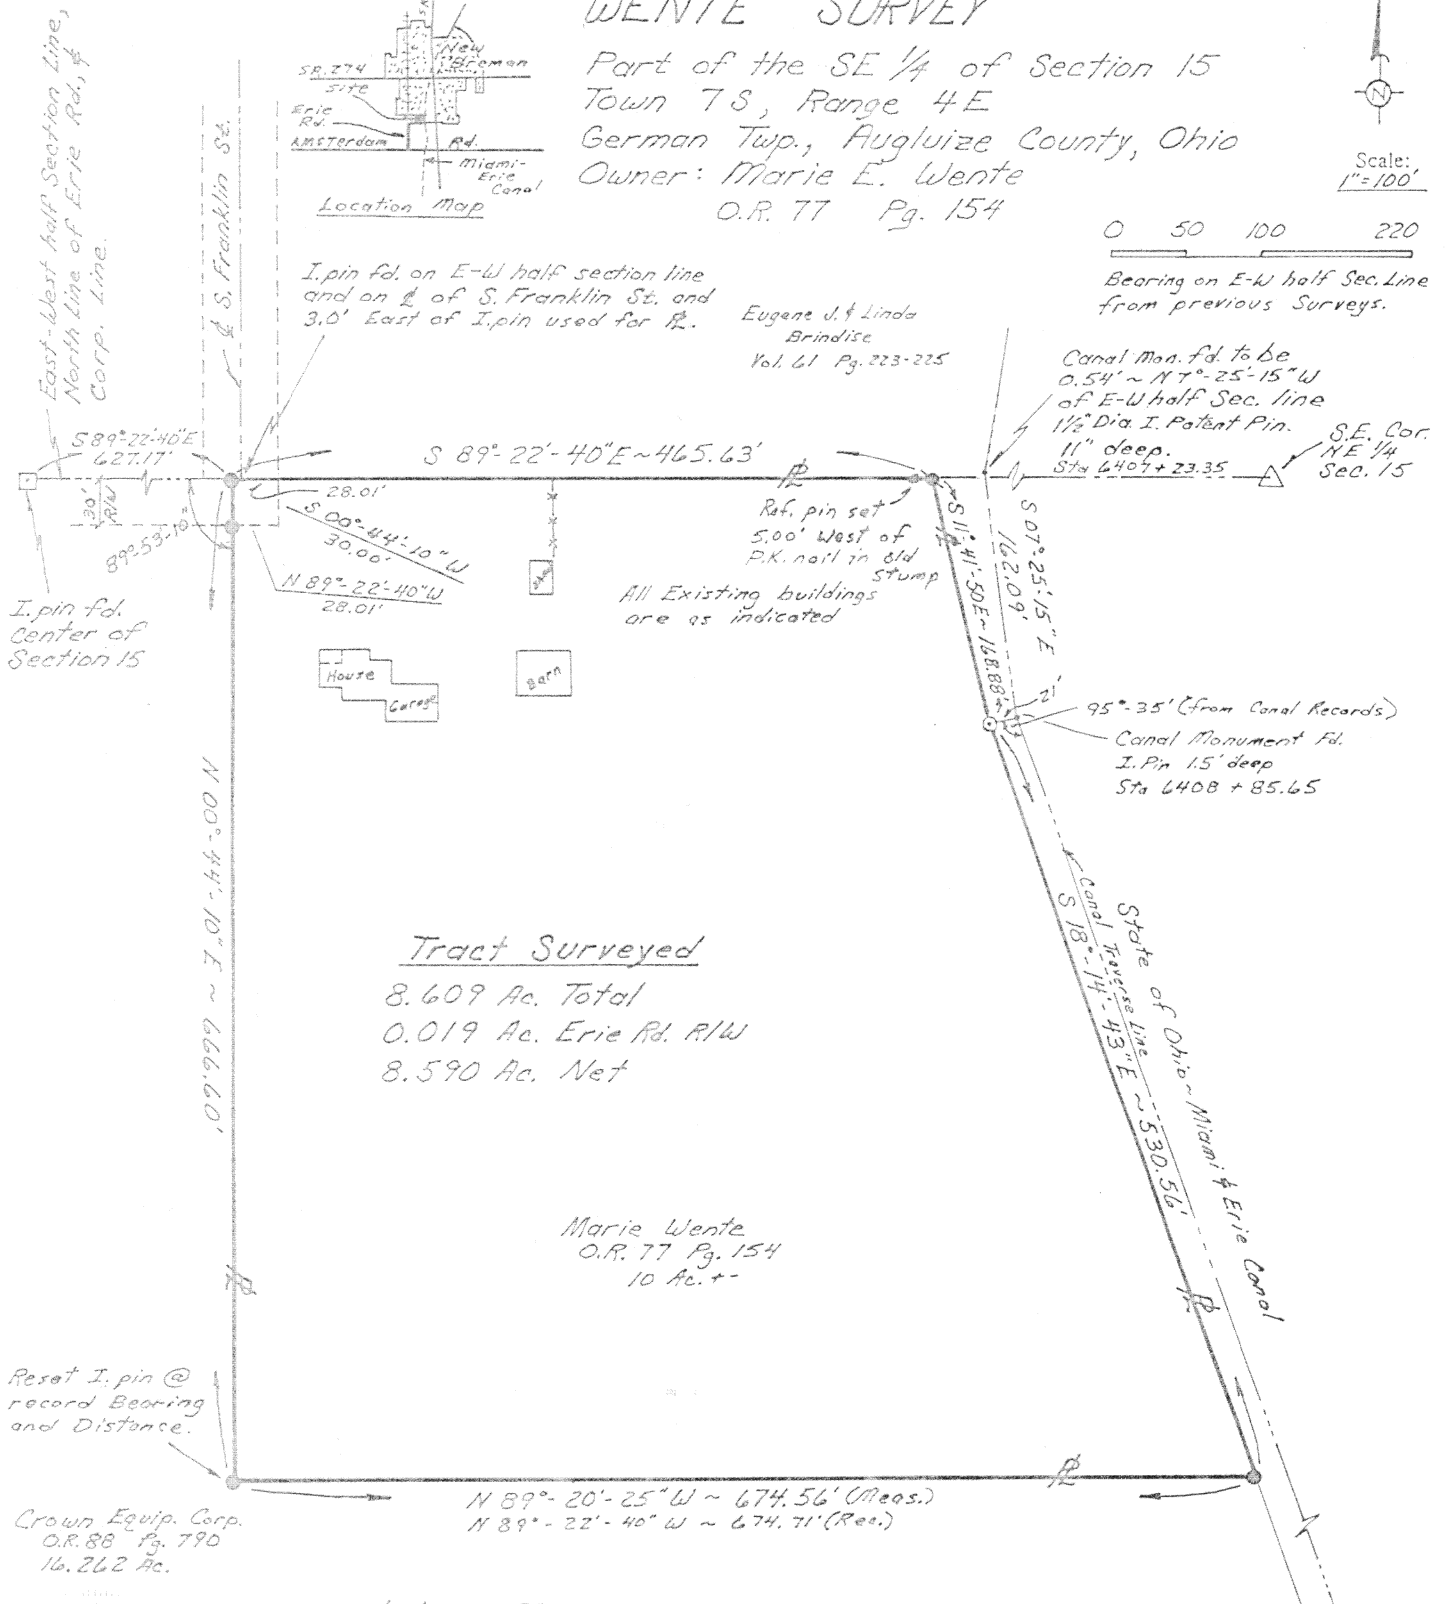 WENTE SURVEY
Part of the SE 1/4 of Section 15
Town 7S, Range 4E
German Twp., Augluize County, Ohio
Owner: Marie E. Wente
O.R. 77 Pg. 154
Scale:
1"=100'
0 50 100 220
Bearing on E-W half Sec. Line
from previous Surveys.
New
Bremen
S.R. 274
Site
Erie
Rd.
Amsterdam Rd.
Miami-
Erie
Canal
Location Map
East-West half Section Line,
North Line of Erie Rd., &
Corp. Line.
℄ S. Franklin St.
I. pin fd. on E-W half section line
and on ℄ of S. Franklin St. and
3.0' East of I. pin used for ℄.
Eugene J. & Linda
Brindise
Vol. 61 Pg. 223-225
Canal Mon. fd. to be
0.54' ~ N 7°-25'-15" W
of E-W half Sec. line
1½" Dia. I. Patent Pin.
11" deep.
Sta 6407 + 23.35
S.E. Cor.
NE 1/4
Sec. 15
S 89°-22'-40" E
627.17'
S 89°-22'-40" E ~ 465.63'
℄
30'
R/W
89°-53'-10"
28.01'
S 00°-44'-10" W
30.00'
N 89°-22'-40" W
28.01'
Ref. pin set
5.00' West of
P.K. nail in old
Stump
All Existing buildings
are as indicated
I. pin fd.
Center of
Section 15
House
Garage
Barn
S 11°-41'-50 E ~ 168.88'
S 07°-25'-15" E
162.09'
21'
95°-35' (from Canal Records)
Canal Monument Fd.
I. Pin 1.5' deep
Sta 6408 + 85.65
N 00°-44'-10" E ~ 666.60'
Tract Surveyed
8.609 Ac. Total
0.019 Ac. Erie Rd. R/W
8.590 Ac. Net
Canal Traverse Line
S 18°-14'-43" E ~ 530.56'
State of Ohio ~ Miami & Erie Canal
Marie Wente
O.R. 77 Pg. 154
10 Ac. +-
Reset I. pin @
record Bearing
and Distance.
N 89°-20'-25" W ~ 674.56' (Meas.)
N 89°-22'-40" W ~ 674.71' (Rec.)
Crown Equip. Corp.
O.R. 88 Pg. 790
16.262 Ac.